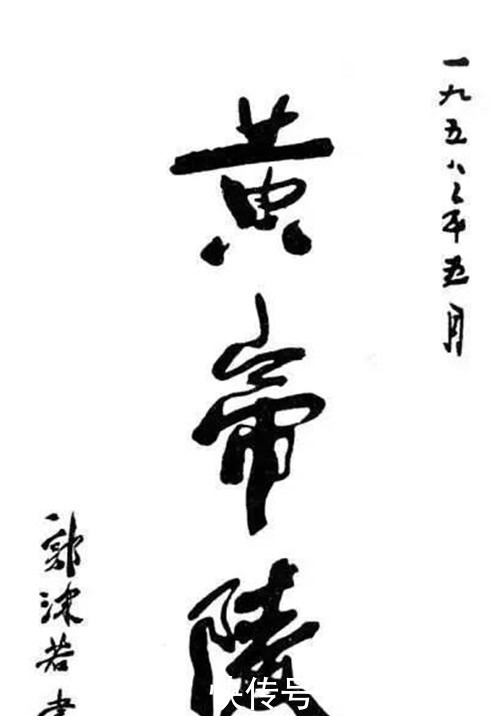 一九五八年五月
黄帝陵
郭沫若书
快传号